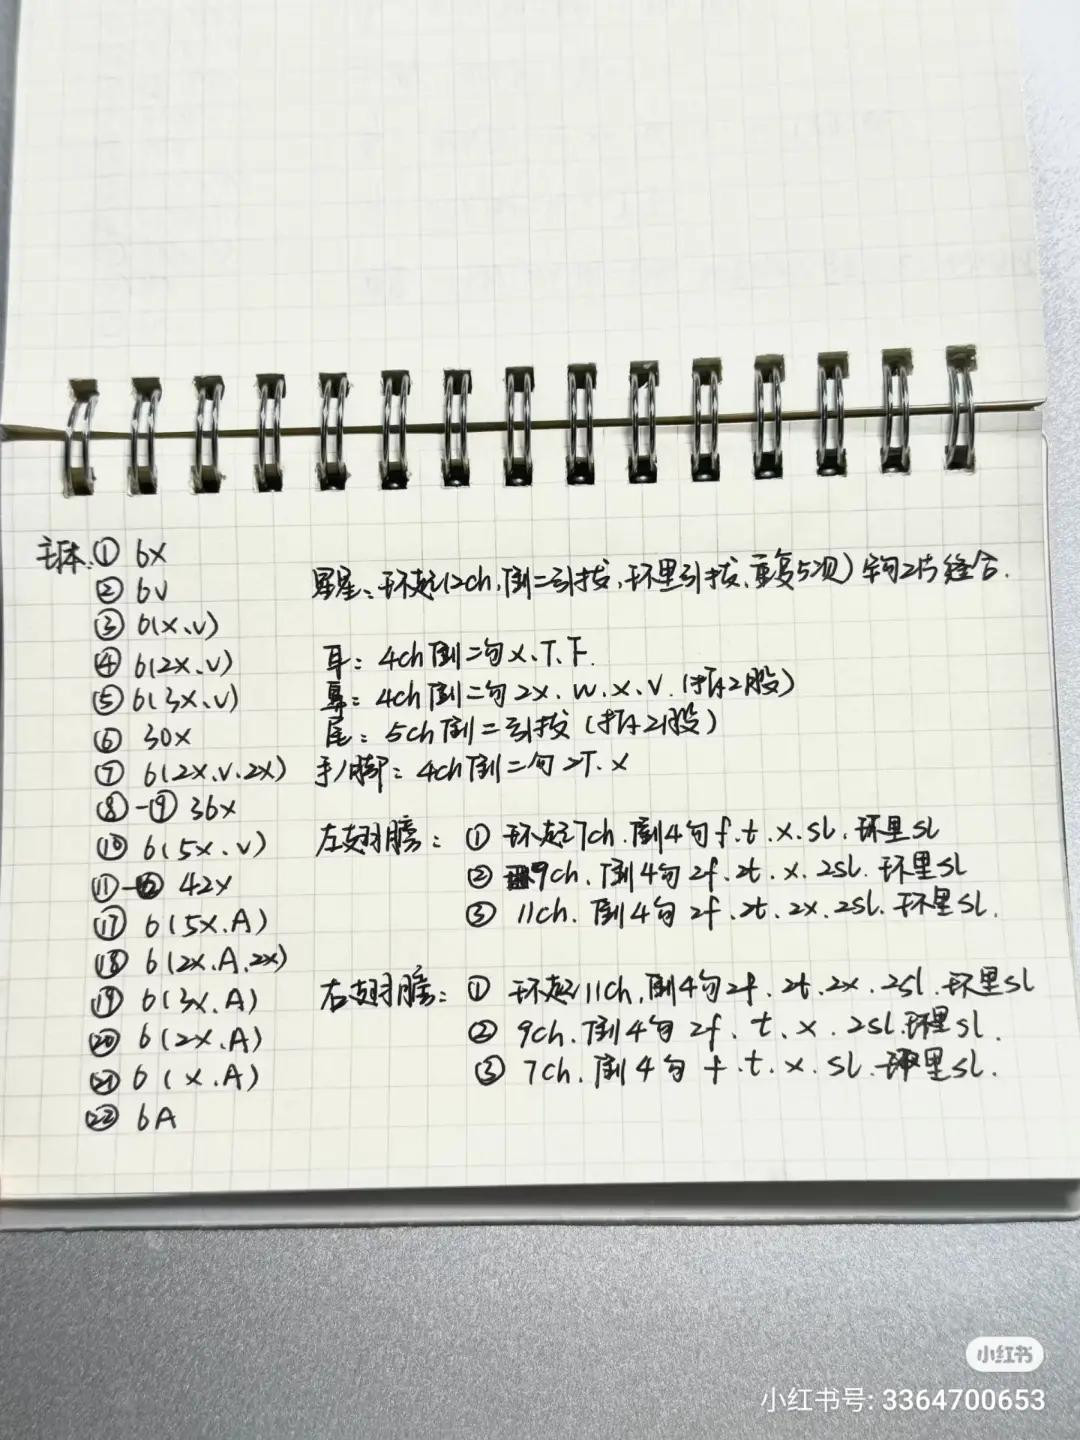 主体: ① 6X
② 6V
③ 6(X、V)
④ 6(2X、V)
⑤ 6(3X、V)
⑥ 30X
⑦ 6(2X、V、2X)
⑧-⑨ 36X
⑩ 6(5X、V)
⑪-⑯ 42X
⑰ 6(5X、A)
⑱ 6(2X、A、2X)
⑲ 6(3X、A)
⑳ 6(2X、A)
㉑ 6(X、A)
㉒ 6A
星星: 环起(2ch,倒二引拔,环里引拔,重复5次)钩2片缝合.
耳: 4ch倒二勾X、T、F.
鼻: 4ch倒二勾2X、W、X、V.(拆2股)
尾: 5ch倒二引拔(拆2股)
手/脚: 4ch倒二勾2T、X
左翅膀: ① 环起7ch.倒4勾f.t.x.sl.环里SL
② 9ch.倒4勾2f.2t.x.2sl.环里SL
③ 11ch.倒4勾2f.2t.2x.2sl.环里SL.
右翅膀: ① 环起11ch,倒4勾2f.2t.2x.2sl.环里SL
② 9ch.倒4勾2f.t.x.2sl.环里sl.
③ 7ch.倒4勾f.t.x.SL.环里SL.
小红书
小红书号: 3364700653